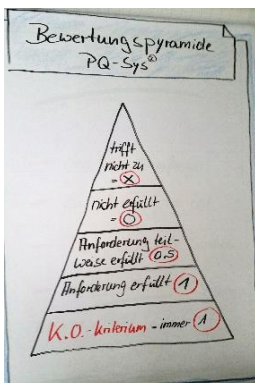 Bewertungspyramide
PQ-Sys®
trifft
nicht zu
= X
nicht erfüllt
= O
Anforderung teil-
weise erfüllt 0.5
Anforderung erfüllt 1
K.O.-Kriterium - immer 1